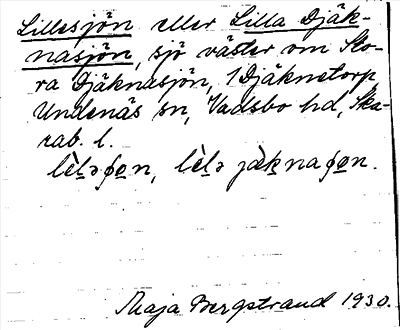 Lillesjön eller Lilla Djäk-
nasjön, sjö väster om Sto-
ra Djäknasjön, 1 Djäknetorp
Undenäs sn, Vadsbo hd, Ska-
rab. l.
lèlə ɸən, lèlə jækna ɸən.
Maja Bergstrand 1930.